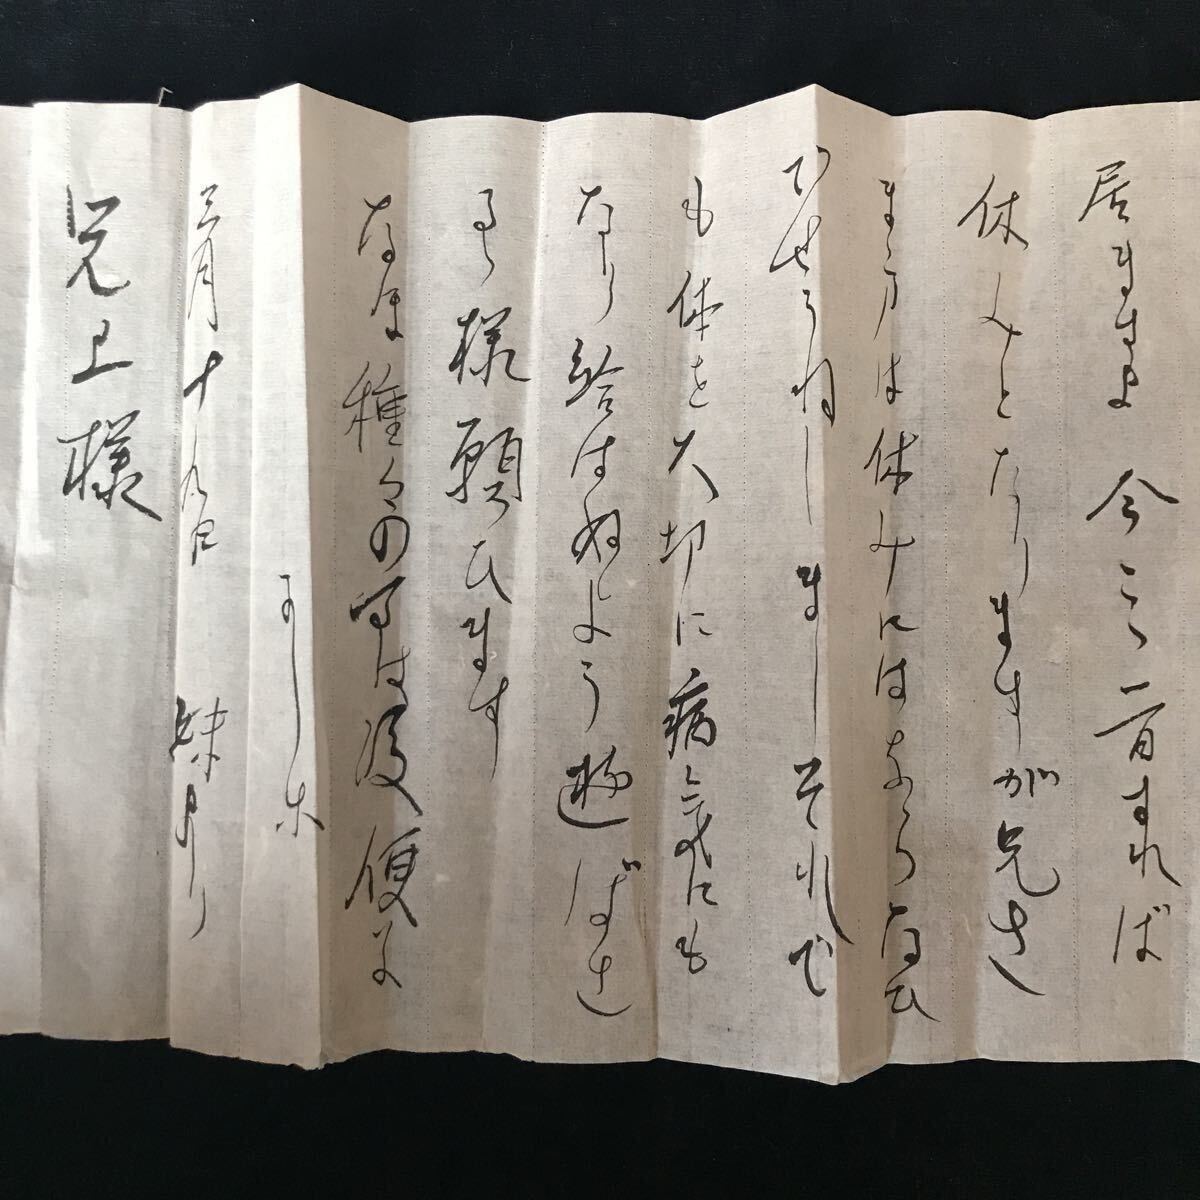 居ますよ 今二、三日すれば
休みとなりますが兄さ
ま方は休みにはならなひ
でせうねしましそれで
も体を大切に病気にも
なり給はぬよう遊ばさ
る様願ひます
なほ種々の事は後便に
かしこ
三月十九日 妹より
兄上様